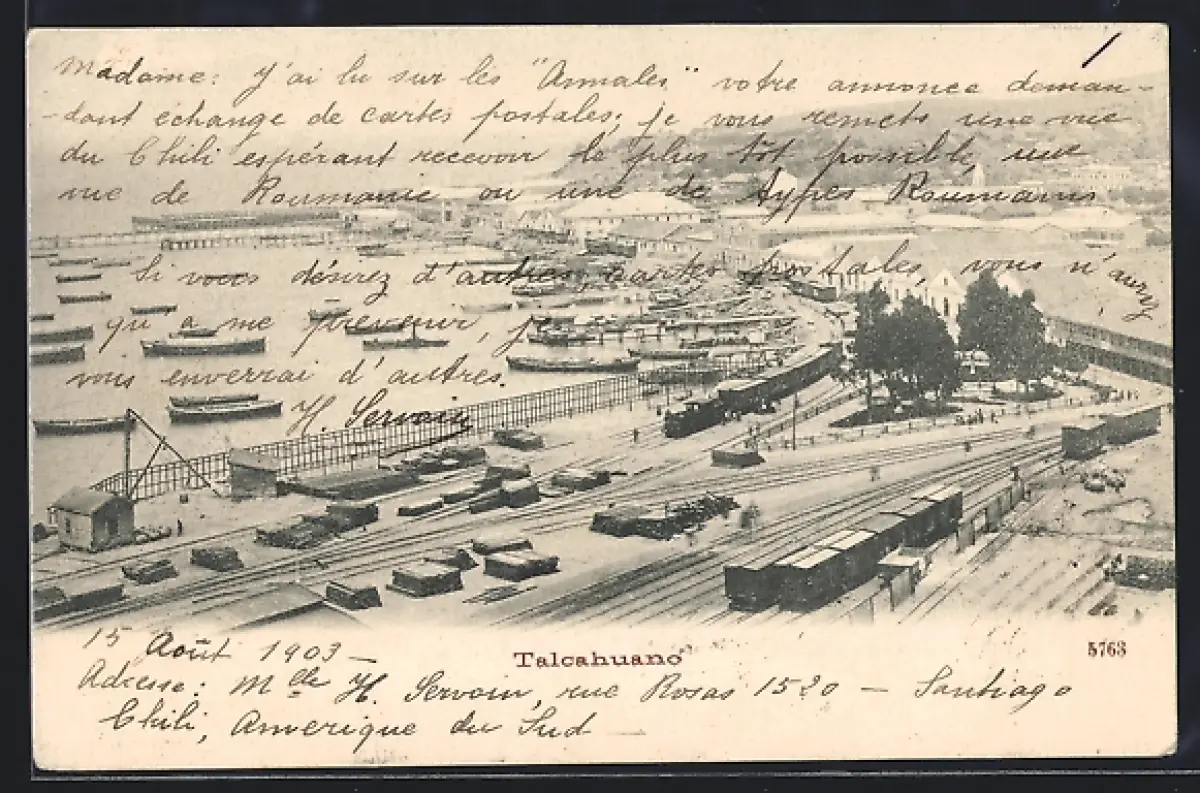 Madame: j'ai lu sur les "Annales" votre annonce deman-
-dant echange de cartes postales; je vous remets une vue
du Chili espérant recevoir le plus tôt possible, une
vue de Roumanie ou une de types Roumains
Si vous désirez d'autres cartes postales, vous n'aurez
qu'a me prevenir, je
vous enverrai d'autres.
H. Servoin
15 Août 1903 —
Talcahuano
5763
Adresse: Mlle H. Servoin, rue Rosas 1520 — Santiago
Chili, Amerique du Sud —